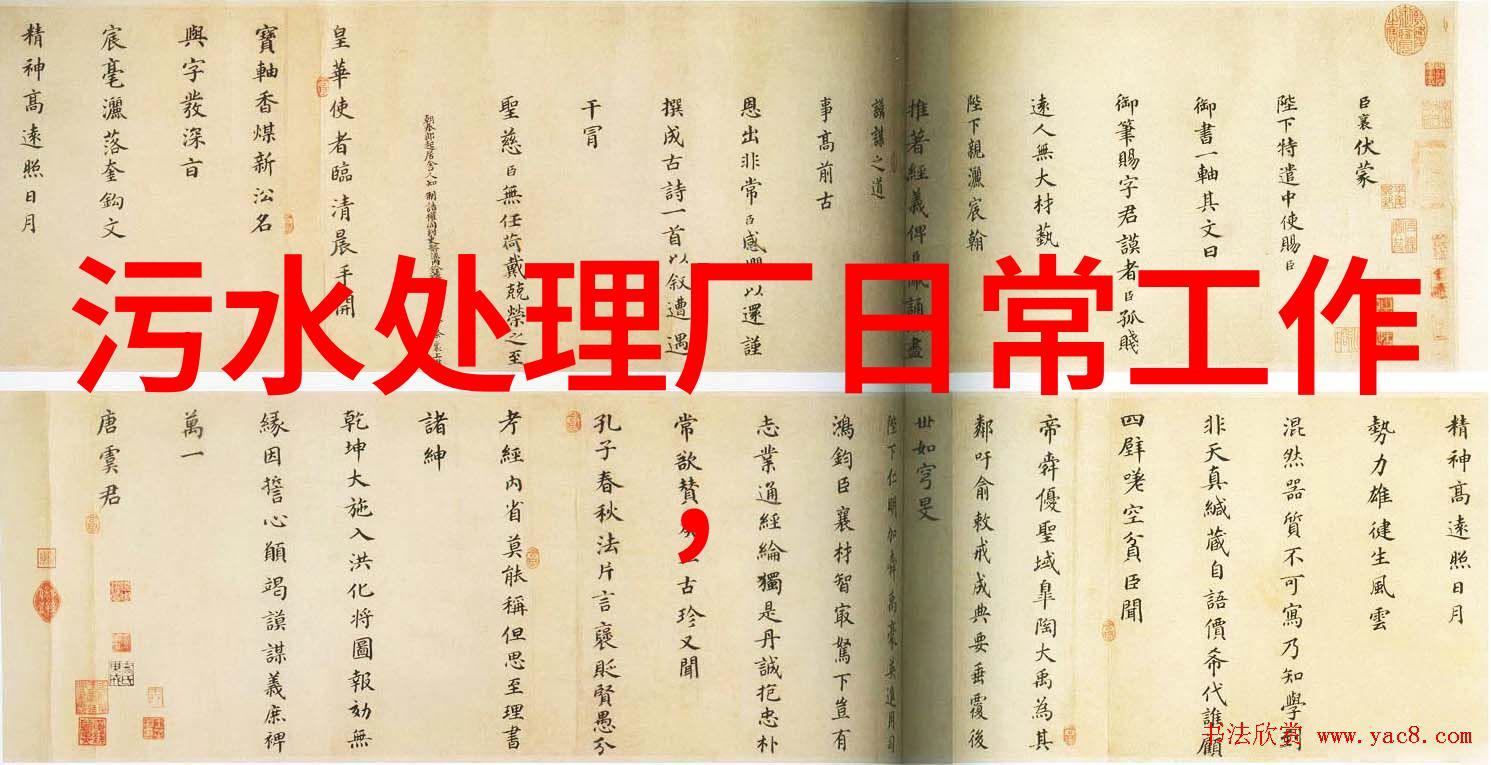 污水处理厂日常工作
，
臣襄伏蒙
陛下特遣中使賜臣
御書一軸其文曰
御筆賜字君謨者臣孤賤
遠人無大材藝
陛下親灑宸翰
推著經義俾臣
誦盡
謀謨之道
事髙前古
恩出非常臣感
以還謹
撰成古詩一首以叙遭遇
干冐
聖慈臣無任荷戴兢榮之至
皇華使者臨清晨手開
寶軸香煤新沄名
與字發深㫖
宸毫灑落奎鈎文
精神髙遠照日月
精神髙遠照日月
勢力雄健生風雲
混然器質不可寫乃知學到
非天真緘藏自語價希代誰顧
四壁嘆空貧臣聞
帝舜優聖域臯陶大禹為其
鄰吁俞敕戒成典要垂覆後
世如穹旻
陛下仁明如舜禹豪英進用司
鴻鈞臣襄材智最駑下豈有
志業通經綸獨是丹誠抱忠朴
常欲賛
古珍又聞
孔子春秋法片言褒貶賢愚分
考經內省莫能稱但思至理書
諸紳
乾坤大施入洪化將圖報効無
緣因誓心願竭謨謀義庶裨
萬一
唐虞君
书法欣赏 www.yac8.com